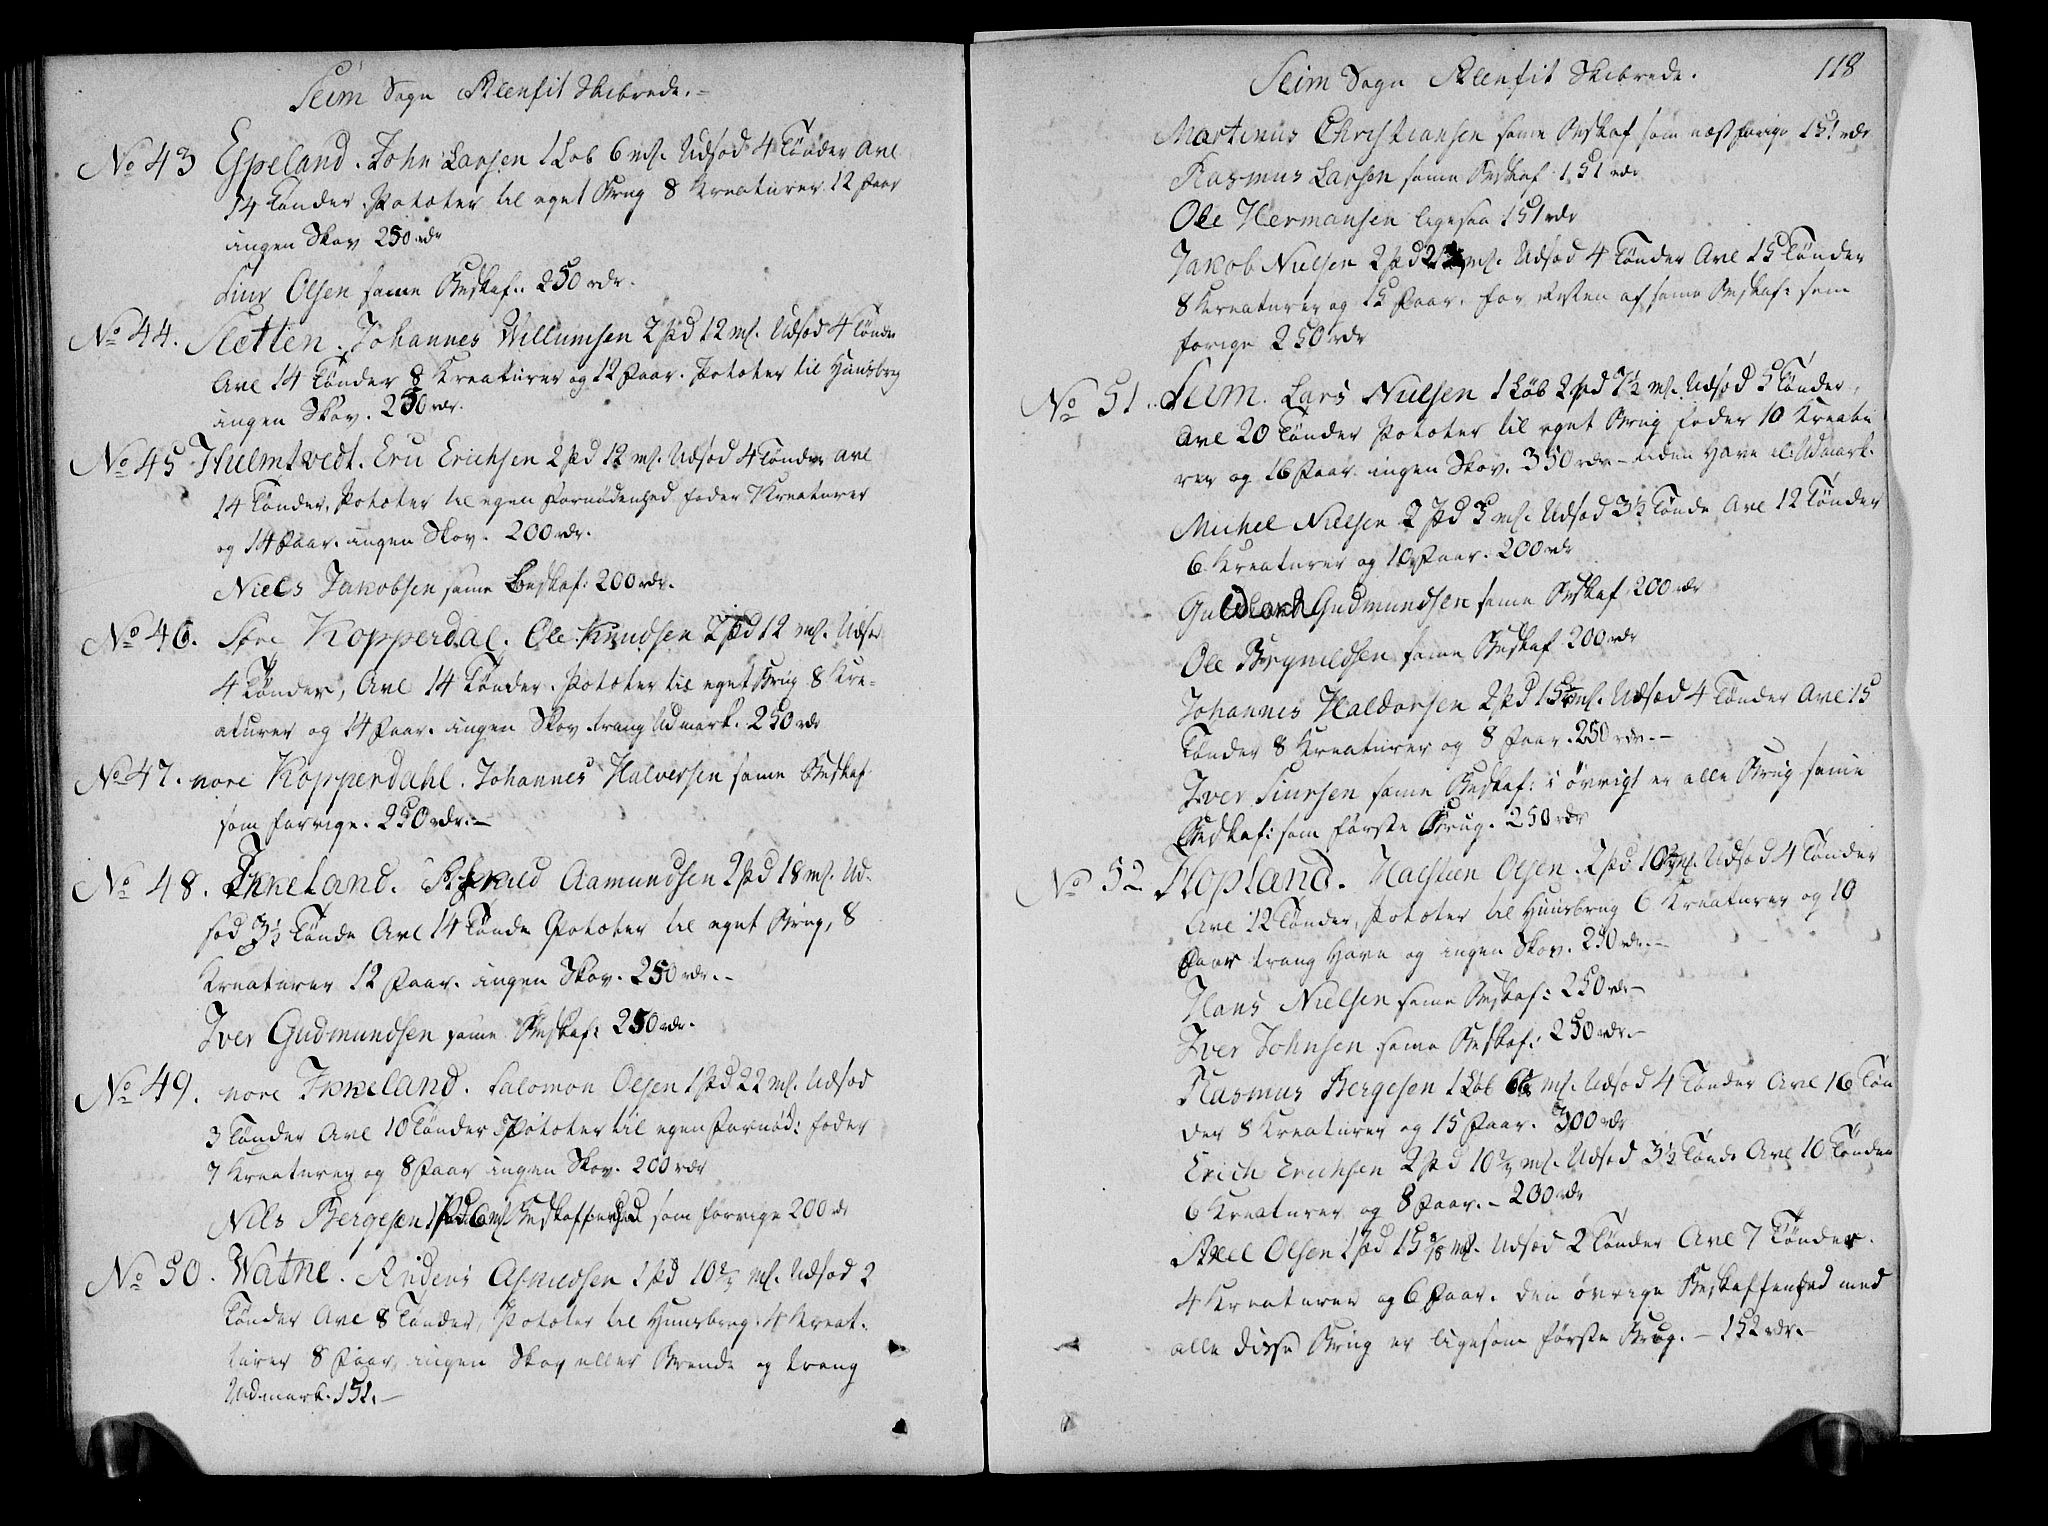 Seim Sogn Alenfit Skibrede.
No 43 Espeland. John Larsen 1 Løb 6 mk. Udsæd 4 Tønder Avl
14 Tønder, Pototer til eget Brug 8 Kreaturer 12 Faar
ingen Skov 250 rdr
Siur Olsen same Beskaf: 250 rdr.
No 44. Sletten. Johannes Willumsen 2 pd 12 mk. Udsæd 4 Tønder
Avl 14 Tønder 8 Kreaturer og 12 Faar. Pototer til Huusbrug
ingen Skov. 250 rdr.
No 45 Hielmtvedt. Eric Erichsen 2 pd 12 mk. Udsæd 4 Tønder Avl
14 Tønder, Pototer til egen Fornødenhed foder 7 Kreaturer
og 14 Faar. ingen Skov. 200 rdr.
Niels Jakobsen same Beskaf: 200 rdr.
No 46. Søre Kopperdal. Ole Knudsen 2 pd 12 mk. Udsæd
4 Tønder, Avl 14 Tønder. Pototer til eget Brug 8 Kre-
aturer og 14 Faar. ingen Skov trang Udmark. 250 rdr
No 47. nore Kopperdahl. Johannes Halversen same Beskaf
som forrige. 250 rdr.
No 48. Ikkeland. Aamundsen 2 pd 18 mk. Ud-
sæd 3½ Tønde Avl 14 Tønde Pototer til eget Brug, 8
Kreaturer 12 Faar. ingen Skov. 250 rdr.
Iver Gudmundsen same Beskaf: 250 rdr.
No 49. nore Ikkeland. Salomon Olsen 1 pd 22 mk. Udsæd
3 Tønder Avl 10 Tønder Pototer til egen Fornød: foder
7 Kreaturer og 8 Faar ingen Skov. 200 rdr
Nils Bergesen 1 pd 6 mk Beskaffenhed som forrige 200 rdr
No 50. Watne. Anders Asmildsen 1 pd 10 mk. Udsæd 2
Tønder Avl 8 Tønder, Pototer til Huusbrug. 4 Kreat-
turer 8 Faar, ingen Skov eller Brende og trang
Udmark. 151.
Seim Sogn Alenfit Skibrede. 118
Martinus Christiansen same Beskaf som næst forige 151 rdr
Rasmus Larsen same Beskaf 151 rdr
Ole Hermansen ligesaa 151 rdr
Jakob Nielsen 2 pd mk. Udsæd 4 Tønder Avl 15 Tønder
8 Kreaturer og 15 Faar. for Resten af same Beskaf: som
forige 250 rdr
No 51. Seim. Lars Nielsen 1 Løb 2 pd 7½ mk. Udsæd 5 Tønder,
Avl 20 Tønder Pototer til eget Brug foder 10 Kreatu
rer og 16 Faar. ingen Skov. 350 rdr - liden Have el: Udmark.
Michel Nielsen 2 pd 3 mk. Udsæd 3½ Tønde Avl 12 Tønder
6 Kreaturer og 10 Faar. 200 rdr
Guldbrand Gudmundsen same Beskaf 200 rdr
Ole Brynildsen same Beskaf 200 rdr
Johannes Haldorsen 2 pd 15 mk. Udsæd 4 Tønder Avl 15
Tønder 8 Kreaturer og 8 Faar. 250 rdr.
Iver Siursen same Beskaf: i øvrigt er alle Brug same
Beskaf: som første Brug. 250 rdr
No 52 Hopland. Halstien Olsen. 2 pd 10 mk. Udsæd 4 Tønder
Avl 12 Tønder, Pototer til Huusbrug 6 Kreaturer og 10
Faar trang Have og ingen Skov. 250 rdr.
Hans Nielsen same Beskaf: 250 rdr
Iver Johnsen same Beskaf: 250 rdr.
Rasmus Bergesen 1 Løb mk. Udsæd 4 Tønder Avl 16 Tøn
der 8 Kreaturer og 15 Faar. 300 rdr
Erich Erichsen 2 pd 10 mk. Udsæd 3½ Tønde Avl 10 Tønder
6 Kreaturer og 8 Faar. - 200 rdr
Axel Olsen 1 pd 15 mk. Udsæd 2 Tønder Avl 7 Tønder.
4 Kreaturer og 6 Faar. Den øvrige Beskaffenhed med
alle disse Brug er ligesom første Brug. - 152 rdr.